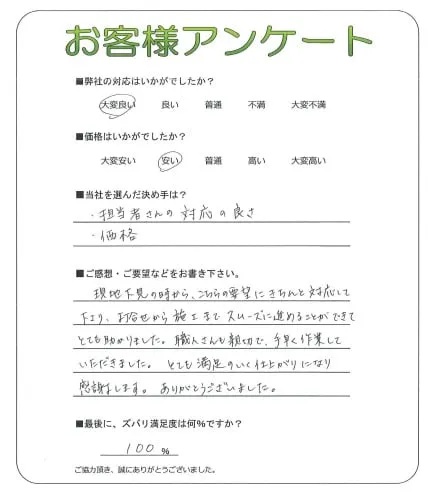 お客様アンケート
■弊社の対応はいかがでしたか？
大変良い 良い 普通 不満 大変不満
■価格はいかがでしたか？
大変安い 安い 普通 高い 大変高い
■当社を選んだ決め手は？
・担当者さんの対応の良さ
・価格
■ご感想・ご要望などをお書き下さい。
現地下見の時から、こちらの要望にきちんと対応して
下さり、お問合せから施工までスムーズに進めることができて
とても助かりました。職人さんも親切で、手早く作業して
いただきました。とても満足のいく仕上がりになり
感謝します。ありがとうございました。
■最後に、ズバリ満足度は何%ですか？
100 %
ご協力頂き、誠にありがとうございました。